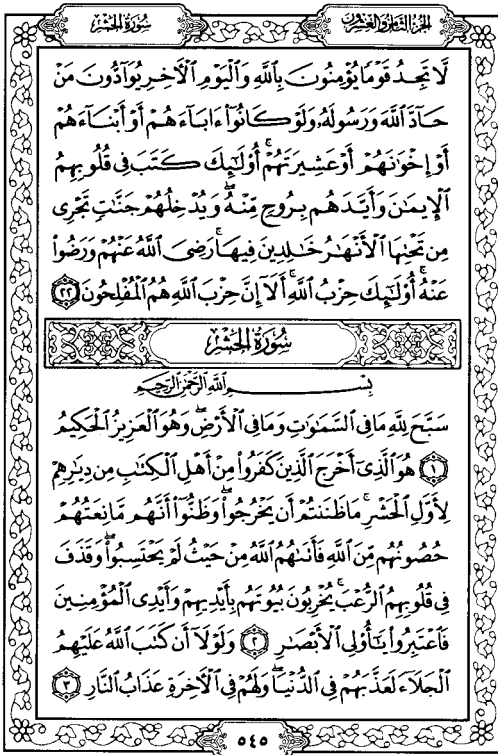 الجزء الثامن والعشرون
سُورَةُ الحَشْرِ
لَّا تَجِدُ قَوْمًا يُؤْمِنُونَ بِٱللَّهِ وَٱلْيَوْمِ ٱلْأٓخِرِ يُوَآدُّونَ مَنْ
حَآدَّ ٱللَّهَ وَرَسُولَهُۥ وَلَوْ كَانُوٓا۟ ءَابَآءَهُمْ أَوْ أَبْنَآءَهُمْ
أَوْ إِخْوَٰنَهُمْ أَوْ عَشِيرَتَهُمْ ۚ أُو۟لَٰٓئِكَ كَتَبَ فِى قُلُوبِهِمُ
ٱلْإِيمَٰنَ وَأَيَّدَهُم بِرُوحٍ مِّنْهُ ۖ وَيُدْخِلُهُمْ جَنَّٰتٍ تَجْرِى
مِن تَحْتِهَا ٱلْأَنْهَٰرُ خَٰلِدِينَ فِيهَا ۚ رَضِىَ ٱللَّهُ عَنْهُمْ وَرَضُوا۟
عَنْهُ ۚ أُو۟لَٰٓئِكَ حِزْبُ ٱللَّهِ ۚ أَلَآ إِنَّ حِزْبَ ٱللَّهِ هُمُ ٱلْمُفْلِحُونَ ٢٢
سُورَةُ الحَشْرِ
بِسْمِ ٱللَّهِ ٱلرَّحْمَٰنِ ٱلرَّحِيمِ
سَبَّحَ لِلَّهِ مَا فِى ٱلسَّمَٰوَٰتِ وَمَا فِى ٱلْأَرْضِ ۖ وَهُوَ ٱلْعَزِيزُ ٱلْحَكِيمُ
١ هُوَ ٱلَّذِىٓ أَخْرَجَ ٱلَّذِينَ كَفَرُوا۟ مِنْ أَهْلِ ٱلْكِتَٰبِ مِن دِيَٰرِهِمْ
لِأَوَّلِ ٱلْحَشْرِ ۚ مَا ظَنَنتُمْ أَن يَخْرُجُوا۟ ۖ وَظَنُّوٓا۟ أَنَّهُم مَّانِعَتُهُمْ
حُصُونُهُم مِّنَ ٱللَّهِ فَأَتَىٰهُمُ ٱللَّهُ مِنْ حَيْثُ لَمْ يَحْتَسِبُوا۟ ۖ وَقَذَفَ
فِى قُلُوبِهِمُ ٱلرُّعْبَ ۚ يُخْرِبُونَ بُيُوتَهُم بِأَيْدِيهِمْ وَأَيْدِى ٱلْمُؤْمِنِينَ
فَٱعْتَبِرُوا۟ يَٰٓأُو۟لِى ٱلْأَبْصَٰرِ ٢ وَلَوْلَآ أَن كَتَبَ ٱللَّهُ عَلَيْهِمُ
ٱلْجَلَآءَ لَعَذَّبَهُمْ فِى ٱلدُّنْيَا ۖ وَلَهُمْ فِى ٱلْأٓخِرَةِ عَذَابُ ٱلنَّارِ ٣
٥٤٥